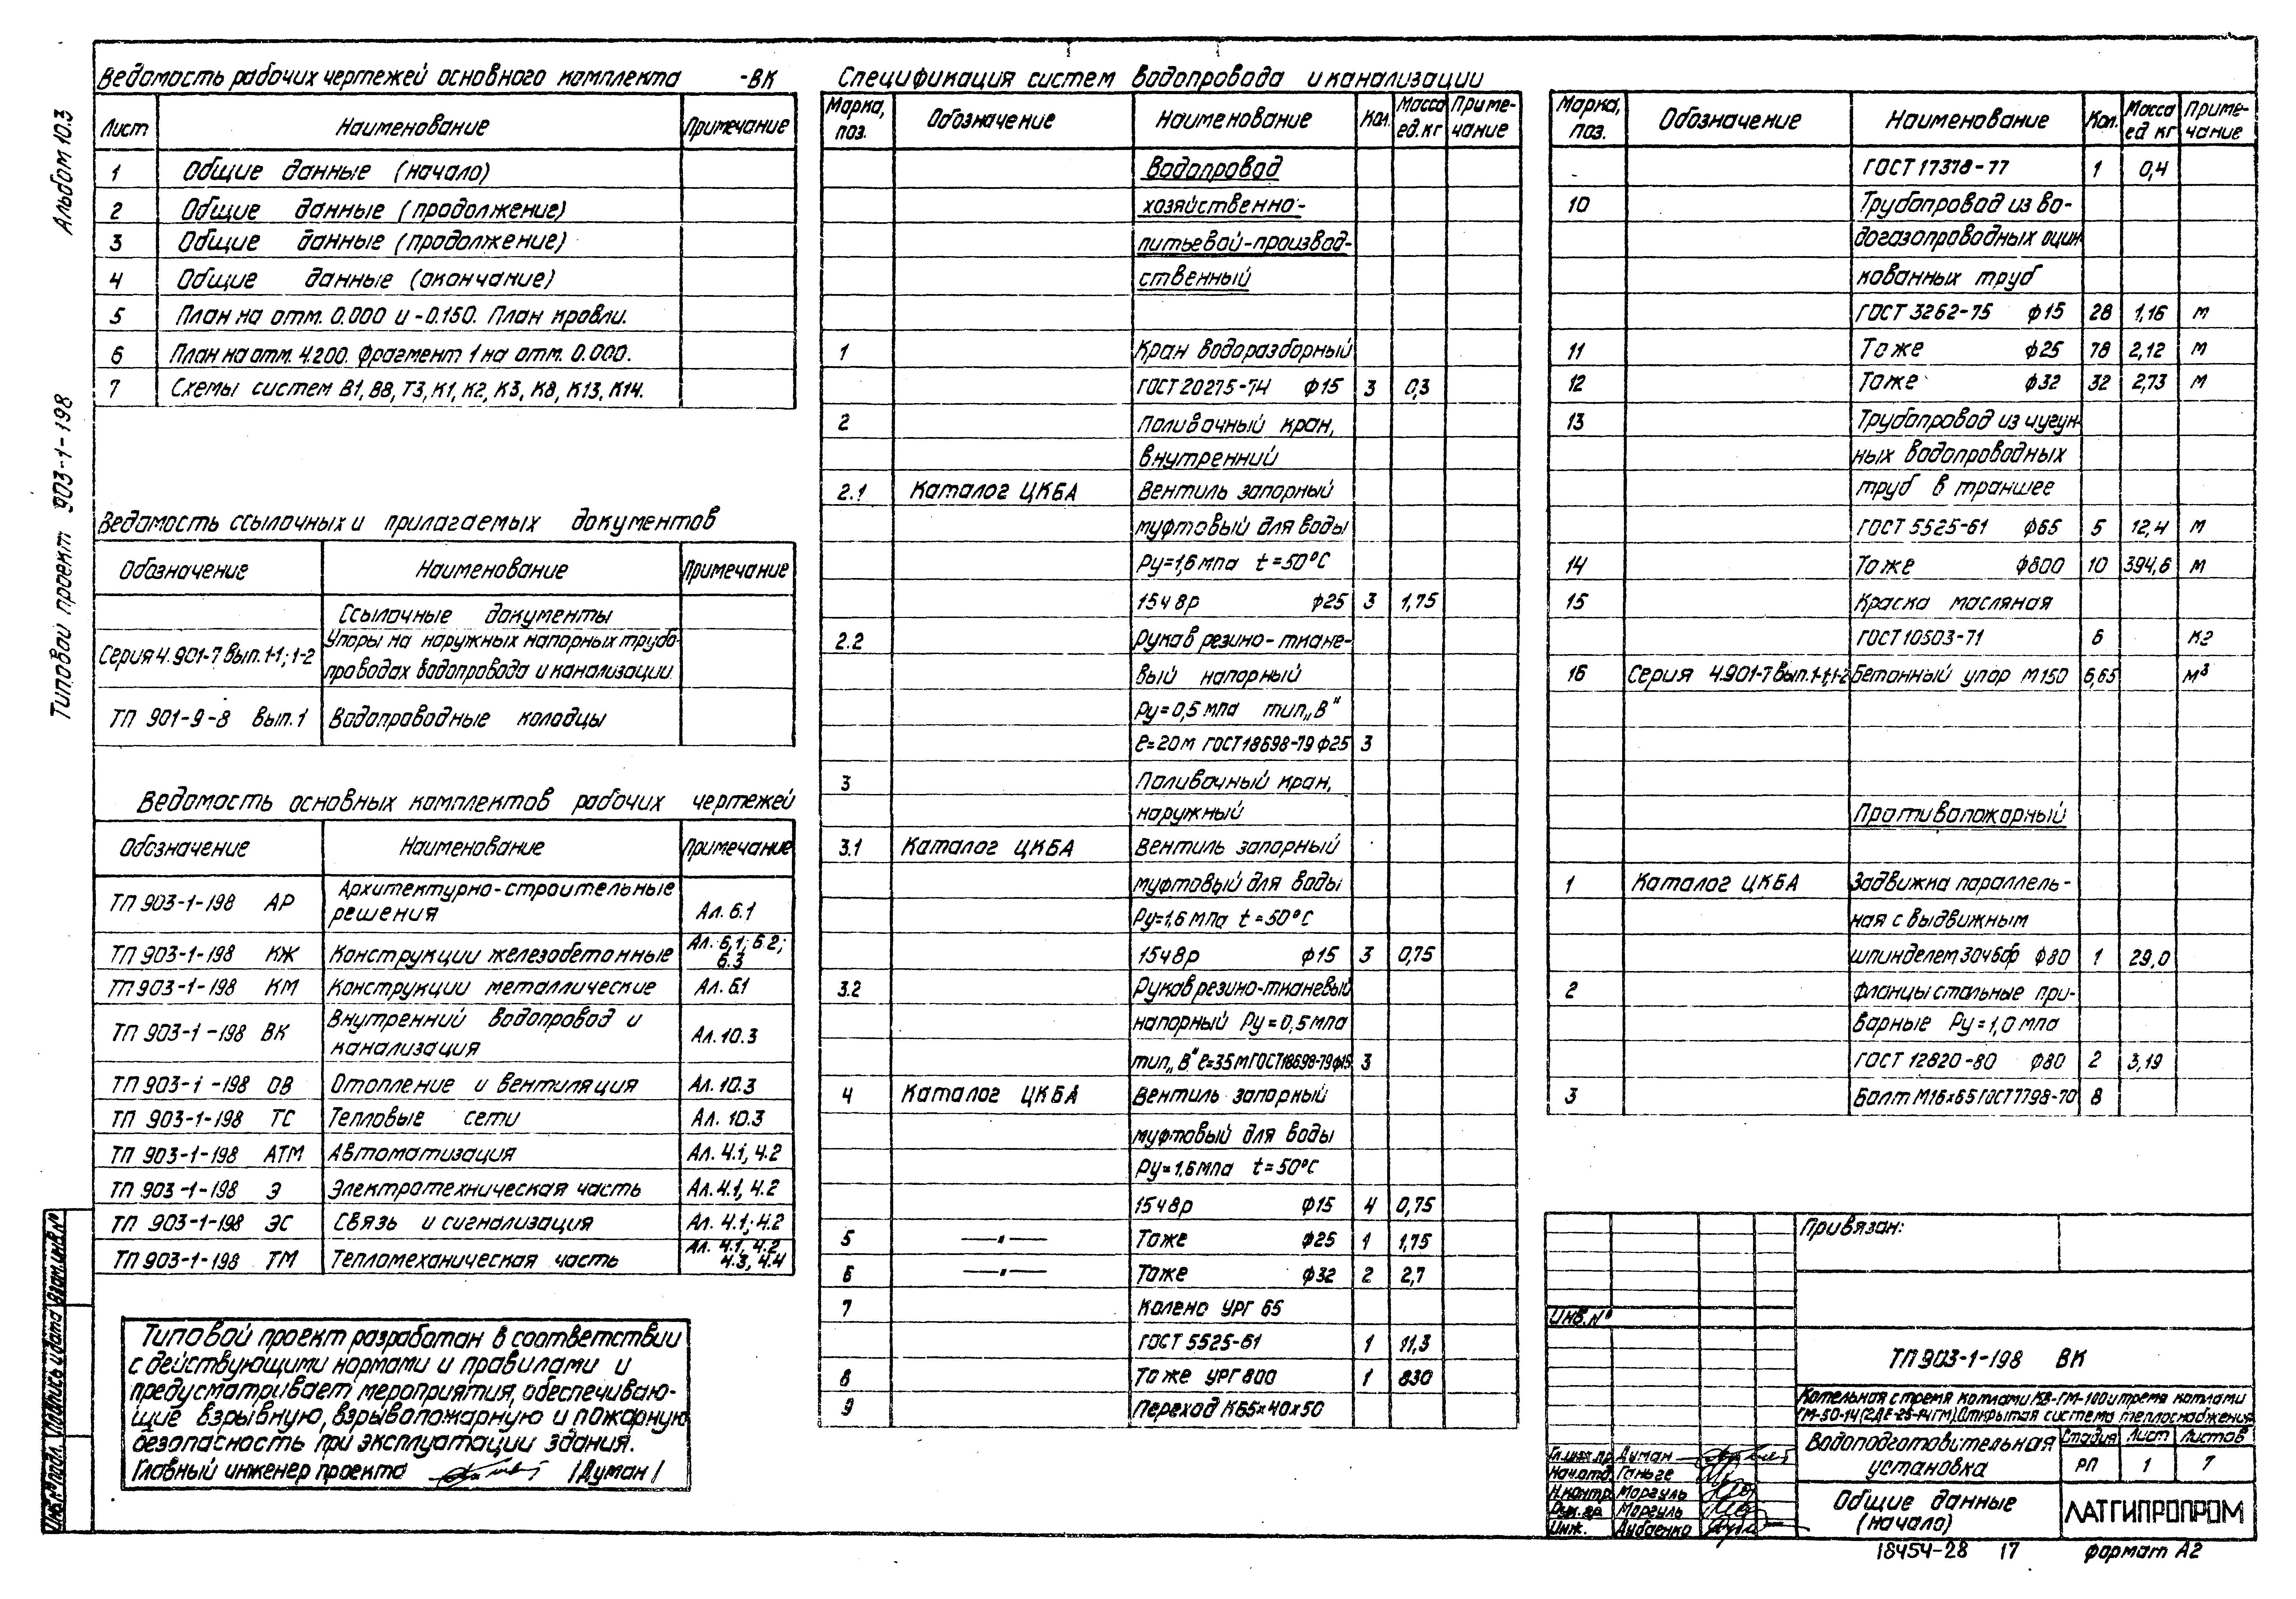 Альбом 10.3
Типовой проект 903-1-198
Ведомость рабочих чертежей основного комплекта -ВК
Лист Наименование Примечание
1 Общие данные (начало)
2 Общие данные (продолжение)
3 Общие данные (продолжение)
4 Общие данные (окончание)
5 План на отм. 0.000 и -0.150. План кровли.
6 План на отм. 4.200. Фрагмент 1 на отм. 0.000.
7 Схемы систем В1, В8, Т3, К1, К2, К3, К8, К13, К14.
Ведомость ссылочных и прилагаемых документов
Обозначение Наименование Примечание
Ссылочные документы
Серия 4.901-7 вып.1-1; 1-2 Упоры на наружных напорных трубо-
проводах водопровода и канализации.
ТП 901-9-8 вып.1 Водопроводные колодцы
Ведомость основных комплектов рабочих чертежей
Обозначение Наименование Примечание
ТП 903-1-198 АР Архитектурно-строительные
решения Ал. 6.1
ТП 903-1-198 КЖ Конструкции железобетонные Ал. 6,1; 6.2;
6.3
ТП 903-1-198 КМ Конструкции металлические Ал. 6.1
ТП 903-1-198 ВК Внутренний водопровод и
канализация Ал. 10.3
ТП 903-1-198 ОВ Отопление и вентиляция Ал. 10.3
ТП 903-1-198 ТС Тепловые сети Ал. 10.3
ТП 903-1-198 АТМ Автоматизация Ал. 4.1, 4.2
ТП 903-1-198 Э Электротехническая часть Ал. 4.1, 4.2
ТП 903-1-198 ЭС Связь и сигнализация Ал. 4.1; 4.2
ТП 903-1-198 ТМ Тепломеханическая часть Ал. 4.1, 4.2
4.3, 4.4
Типовой проект разработан в соответствии
с действующими нормами и правилами и
предусматривает мероприятия, обеспечиваю-
щие взрывную, взрывопожарную и пожарную
безопасность при эксплуатации здания.
Главный инженер проекта /Думан/
Инв.№ подл. Подпись и дата Взам.инв.№
Спецификация систем водопровода и канализации
Марка, поз. Обозначение Наименование Кол. Масса ед.кг Приме-чание
Водопровод
хозяйственно-
питьевой-производ-
ственный
1 Кран водоразборный
ГОСТ 20275-74 ф15 3 0,3
2 Поливочный кран,
внутренний
2.1 Каталог ЦКБА Вентиль запорный
муфтовый для воды
Ру=1,6 мпа t=50°С
15ч8р ф25 3 1,75
2.2 Рукав резино-ткане-
вый напорный
Ру=0,5 мпа тип „В"
ℓ=20м ГОСТ 18698-79 ф25 3
3 Поливочный кран,
наружный
3.1 Каталог ЦКБА Вентиль запорный
муфтовый для воды
Ру=1,6 мпа t=50°С
15ч8р ф15 3 0,75
3.2 Рукав резино-тканевый
напорный Ру=0,5 мпа
тип „В" ℓ=35м ГОСТ 18698-79 ф15 3
4 Каталог ЦКБА Вентиль запорный
муфтовый для воды
Ру=1.6 мпа t=50°С
15ч8р ф15 4 0,75
5 —"— Тоже ф25 1 1,75
6 —"— Тоже ф32 2 2,7
7 Колено УРГ 65
ГОСТ 5525-61 1 11,3
8 Тоже УРГ 800 1 830
9 Переход К65×40×50
Марка, поз. Обозначение Наименование Кол. Масса ед кг Приме-чание
ГОСТ 17378-77 1 0,4
10 Трубопровод из во-
догазопроводных оцин
кованных труб
ГОСТ 3262-75 ф15 28 1,16 м
11 Тоже ф25 78 2,12 м
12 Тоже ф32 32 2,73 м
13 Трубопровод из чугун-
ных водопроводных
труб в траншее
ГОСТ 5525-61 ф65 5 12,4 м
14 Тоже ф800 10 394,6 м
15 Краска масляная
ГОСТ 10503-71 6 кг
16 Серия 4.901-7 вып.1-1;1-2 Бетонный упор М150 6,65 м³
Противопожарный
1 Каталог ЦКБА Задвижка параллель-
ная с выдвижным
шпинделем 30ч6бр ф80 1 29,0
2 Фланцы стальные при-
варные Ру=1,0 мпа
ГОСТ 12820-80 ф80 2 3,19
3 Болт М16×65 ГОСТ 7798-70 8
Привязан:
Инв.№
ТП 903-1-198 ВК
Котельная с тремя котлами КВ-ГМ-100 и тремя котлами
ГМ-50-14 (2ДЕ-25-14ГМ). Открытая система теплоснабжения
Водоподготовительная установка
Стадия Лист Листов
РП 1 7
Гл.инж.пр. Думан
Нач.отд. Ганьге
Н.контр. Моргуль
Рук.гр. Моргуль
Инж. Дубаенко
Общие данные (начало)
ЛАТГИПРОПРОМ
18454-28 17 формат А2